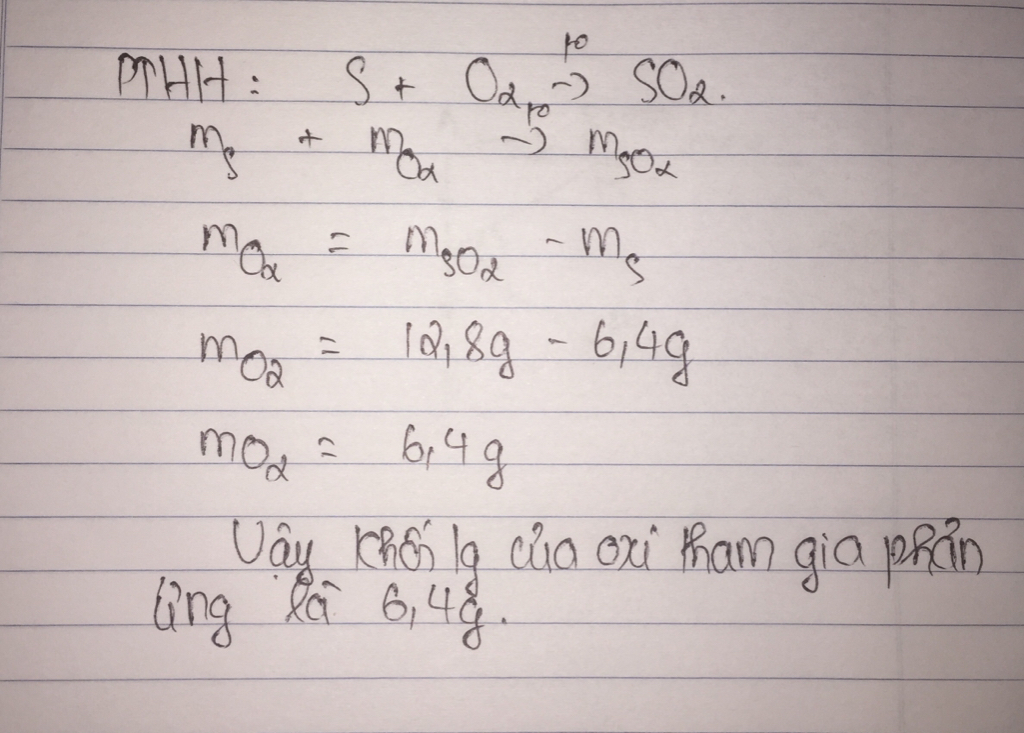 PTHH: S + O2 t° → SO2.
mS + mO2 t° → mSO2
mO2 = mSO2 - mS
mO2 = 12,8g - 6,4g
mO2 = 6,4g
Vậy khối lg của oxi tham gia phản
ứng là 6,4g.